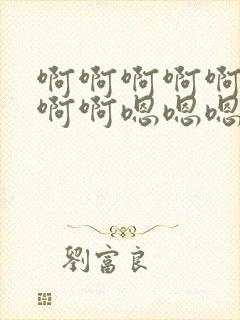 啊啊啊啊啊
啊啊嗯嗯嗯
劉富良